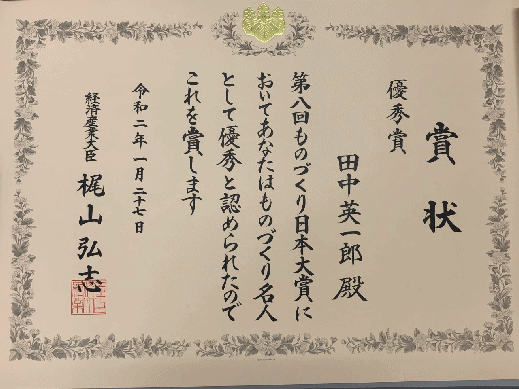 賞状
優秀賞
田中英一郎殿
第八回ものづくり日本大賞に
おいてあなたはものづくり名人
として優秀と認められたので
これを賞します
令和二年一月二十七日
経済産業大臣 梶山弘志